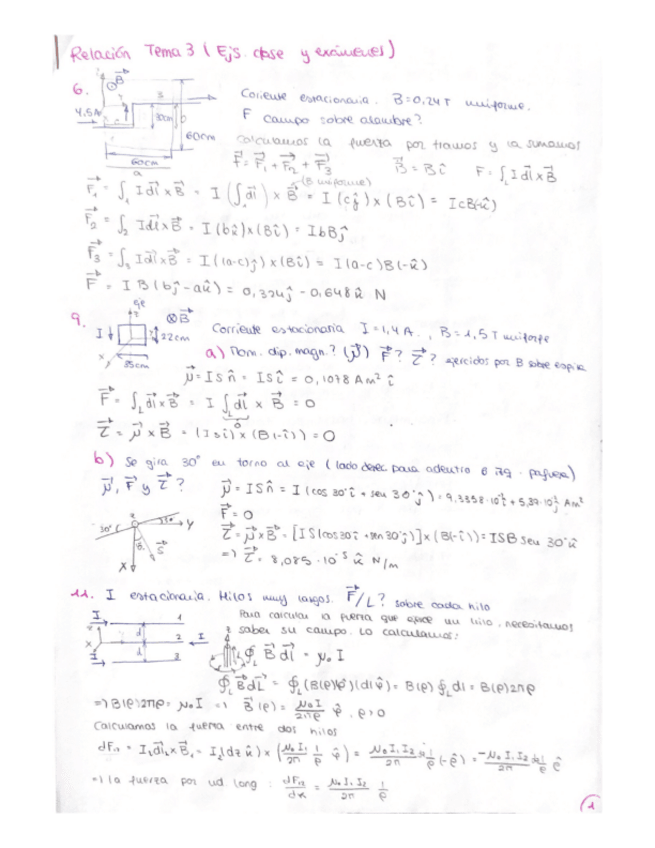 Relación Tema 3 ( Ejs. clase y exámenes)
6.
B⃗
4,5A
3
30cm
b
60cm
60cm
a
Corriente estacionaria. B=0,24T uniforme.
F campo sobre alambre?
Calculamos la fuerza por tramos y la sumamos
F⃗ = F⃗₁ + F⃗₂ + F⃗₃ B⃗ = B î F = ∫_L I dl⃗ x B⃗
F⃗₁ = ∫₁ I dl⃗ x B⃗ = I (∫ dl⃗) x B⃗ (B uniforme) = I (cĵ) x (Bî) = I c B(-k̂)
F⃗₂ = ∫₂ I dl⃗ x B⃗ = I (bk̂)x(Bî) = I b B ĵ
F⃗₃ = ∫₃ I dl⃗ x B⃗ = I ((a-c)ĵ) x (Bî) = I (a-c) B (-k̂)
F⃗ = I B (bĵ - ak̂) = 0,324ĵ - 0,648k̂ N
9.
eje
⊗B⃗
I
22cm
35cm
Corriente estacionaria I=1,4A., B=1,5T uniforme
a) Mom. dip. magn.? (μ⃗) F⃗? τ⃗? ejercidos por B sobre espira
μ⃗ = I S n̂ = I S î = 0,1078 Am² î
F⃗ = ∫_L I dl⃗ x B⃗ = I ∫_L dl⃗ x B⃗ = 0
0
τ⃗ = μ⃗ x B⃗ = (I s î) x (B(-î)) = 0
b) Se gira 30° en torno al eje (lado derec. para adentro e izq. pafuera)
μ⃗, F⃗ y τ⃗ ?
μ⃗ = I S n̂ = I (cos 30° î + sen 30° ĵ) = 9,3358·10⁻² î + 5,39·10⁻² ĵ Am²
F⃗ = 0
τ⃗ = μ⃗ x B⃗ = [IS(cos30 î + sen 30 ĵ)] x (B(-î)) = ISB sen 30° k̂
=> τ⃗ = 8,085 · 10⁻² k̂ N/m
30°
Y
X
S⃗
11. I estacionaria. Hilos muy largos. F⃗/L? sobre cada hilo
I
1
d
2
I
d
I
3
Para calcular la fuerza que ejerce un hilo, necesitamos
saber su campo. Lo calculamos:
∮_L B⃗ dl⃗ = μ₀ I
∮_L B⃗ dL⃗ = ∮_L (B(ρ)φ̂)(dlφ̂) = B(ρ) ∮_L dl = B(ρ) 2πρ
=> B(ρ) 2πρ = μ₀ I => B⃗(ρ) = μ₀ I / 2πρ φ̂, ρ>0
Calculamos la fuerza entre dos hilos
dF₁₂ = I₂ dl⃗₂ x B⃗₁ = I₂(dz k̂) x (μ₀ I₁ / 2π 1/ρ φ̂) = μ₀ I₁ I₂ / 2π dz 1/ρ (-ρ̂) = -μ₀ I₁ I₂ / 2π dz 1/ρ ρ̂
=> la fuerza por ud. long : dF₁₂ / dz = μ₀ I₁ I₂ / 2π 1/ρ
1